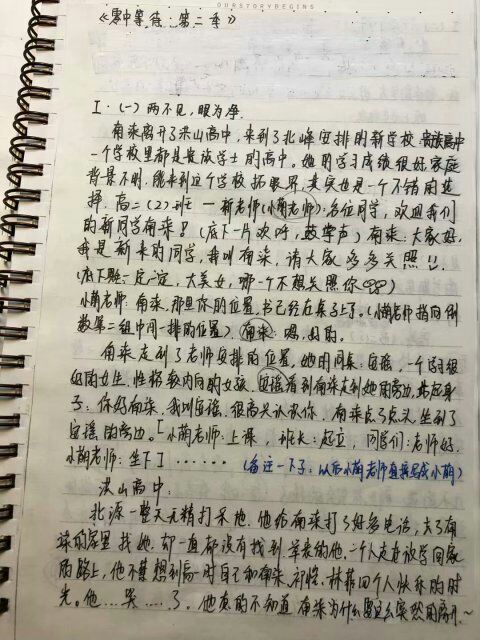 OURSTORYBEGINS
《雾中等待·第二季》
I·(一)两不见,眼为净.
南朵离开了洪山高中,来到了北峰安排的新学校-贵族高中
一个学校里都是贵族学士的高中,她的学习成绩很好,家庭
背景不明,能来到这个学校拓眼界,其实也是一个不错的选
择.高二(2)班 — 新老师(小萌老师):各位同学,欢迎我们
的新同学南朵!(底下一片欢呼,鼓掌声)南朵:大家好,
我是新来的同学,我叫南朵,请大家多多关照!!
(底下默:一定一定,大美女,哪一个不想关照你)
小萌老师:南朵,那里你的位置,书已经在桌子上了。(小萌老师指向倒
数第二组中间一排的位置).南朵:嗯,好的。
南朵走到了老师安排的位置,她的同桌:安谣,一个学习很
好的女生,性格较内向的女孩,安谣看到南朵走到她的旁边,站起身
子:你好南朵,我叫安谣,很高兴认识你,南朵点了点头,坐到了
安谣的旁边。「小萌老师:上课,班长:起立,同学们:老师好,
小萌老师:坐下」……(备注一下子:以后小萌老师直接写成小萌)
洪山高中:
北源一整天无精打采地.他给南朵打了好多电话,去了南
朵的家里找她.却一直都没有找到.举来的他,一个人走在放学回家
的路上,他不禁想到高一时自己和南朵、祁怪、林菲四个人快乐的时
光。他…哭……了。他真的不知道南朵为什么要这么突然的离开.~